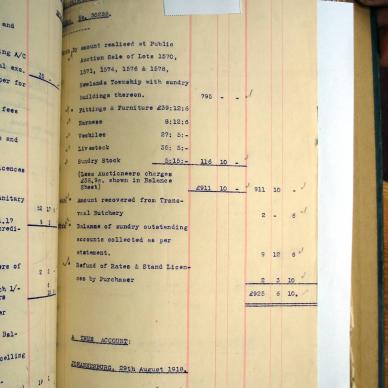 and
ng A/C
al exs.
per for
10
fees
e and
icences
anitary
52 17
.17
credi-
ers of
ch 1/-
s
er
Bal-
celling
No. 30252.
By amount realised at Public
Auction Sale of Lots 1570,
1571, 1574, 1576 & 1578,
Newlands Township with sundry
buildings thereon. 795 - -
Fittings & Furniture £39:12:6
Harness 8:12:6
Vechiles 27: 5:-
Livestock 35: 5:-
Sundry Stock 5:15:- 116 10 -
(Less Auctioneers charges
shown in Balance
Sheet) £911 10 - 911 10 -
Amount recovered from Trans-
vaal Butchery 2 - 6
Balance of sundry outstanding
accounts collected as per
statement. 9 12 6
Refund of Rates & Stand Licen-
ces by Purchaser 2 3 10
£925 6 10.
A TRUE ACCOUNT:
JOHANNESBURG, 29th August 1918.